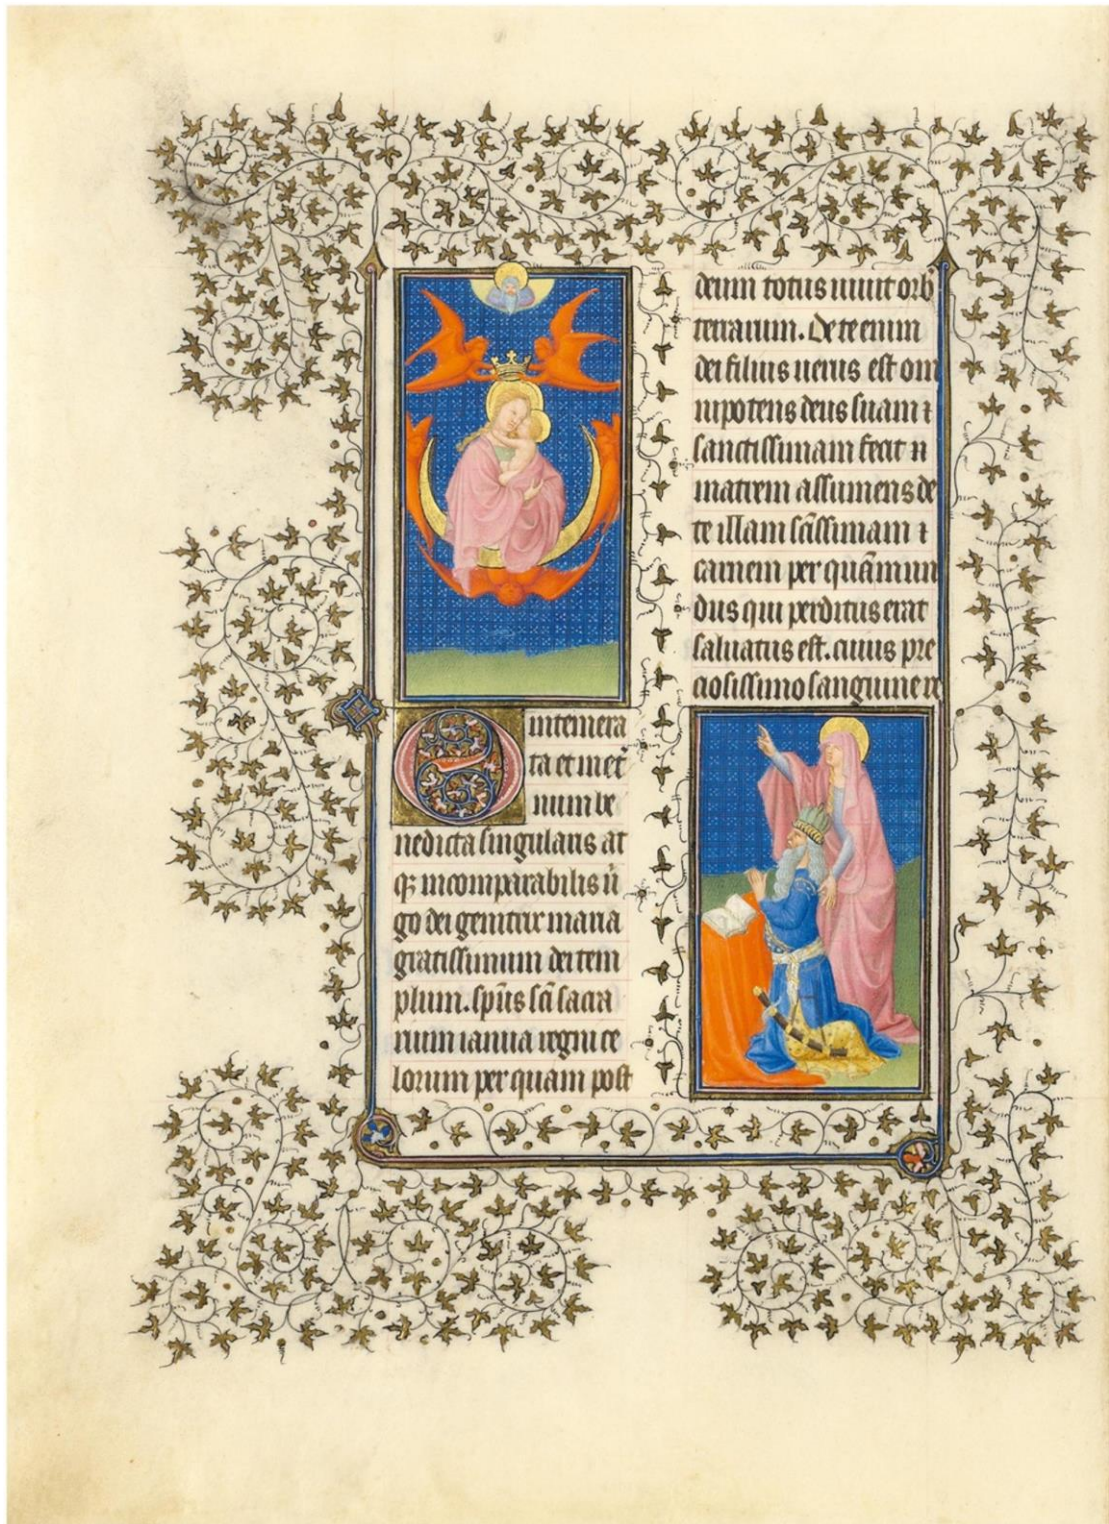 O intemera
ta et inet̾
num be
nedicta singularis at
qꝫ incomparabilis ũ
go dei genitrix maria
gratissimum dei tem
plum. spũs sc̃i sacra
rium ianua regni ce
lorum per quam post
deum totus uiuit orb̾
terrarum. De te enim
dei filius uerus est om
nipotens deus suam ⁊
sanctissimam fecit
matrem assumens de
te illam sc̃issimam ⁊
carnem per quã mun
dus qui perditus erat
saluatus est. cuius pre
ciosissimo sanguine re